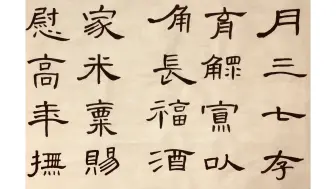 月三七存
育鰥寡以
角長福酒
家米賜
慰高年撫